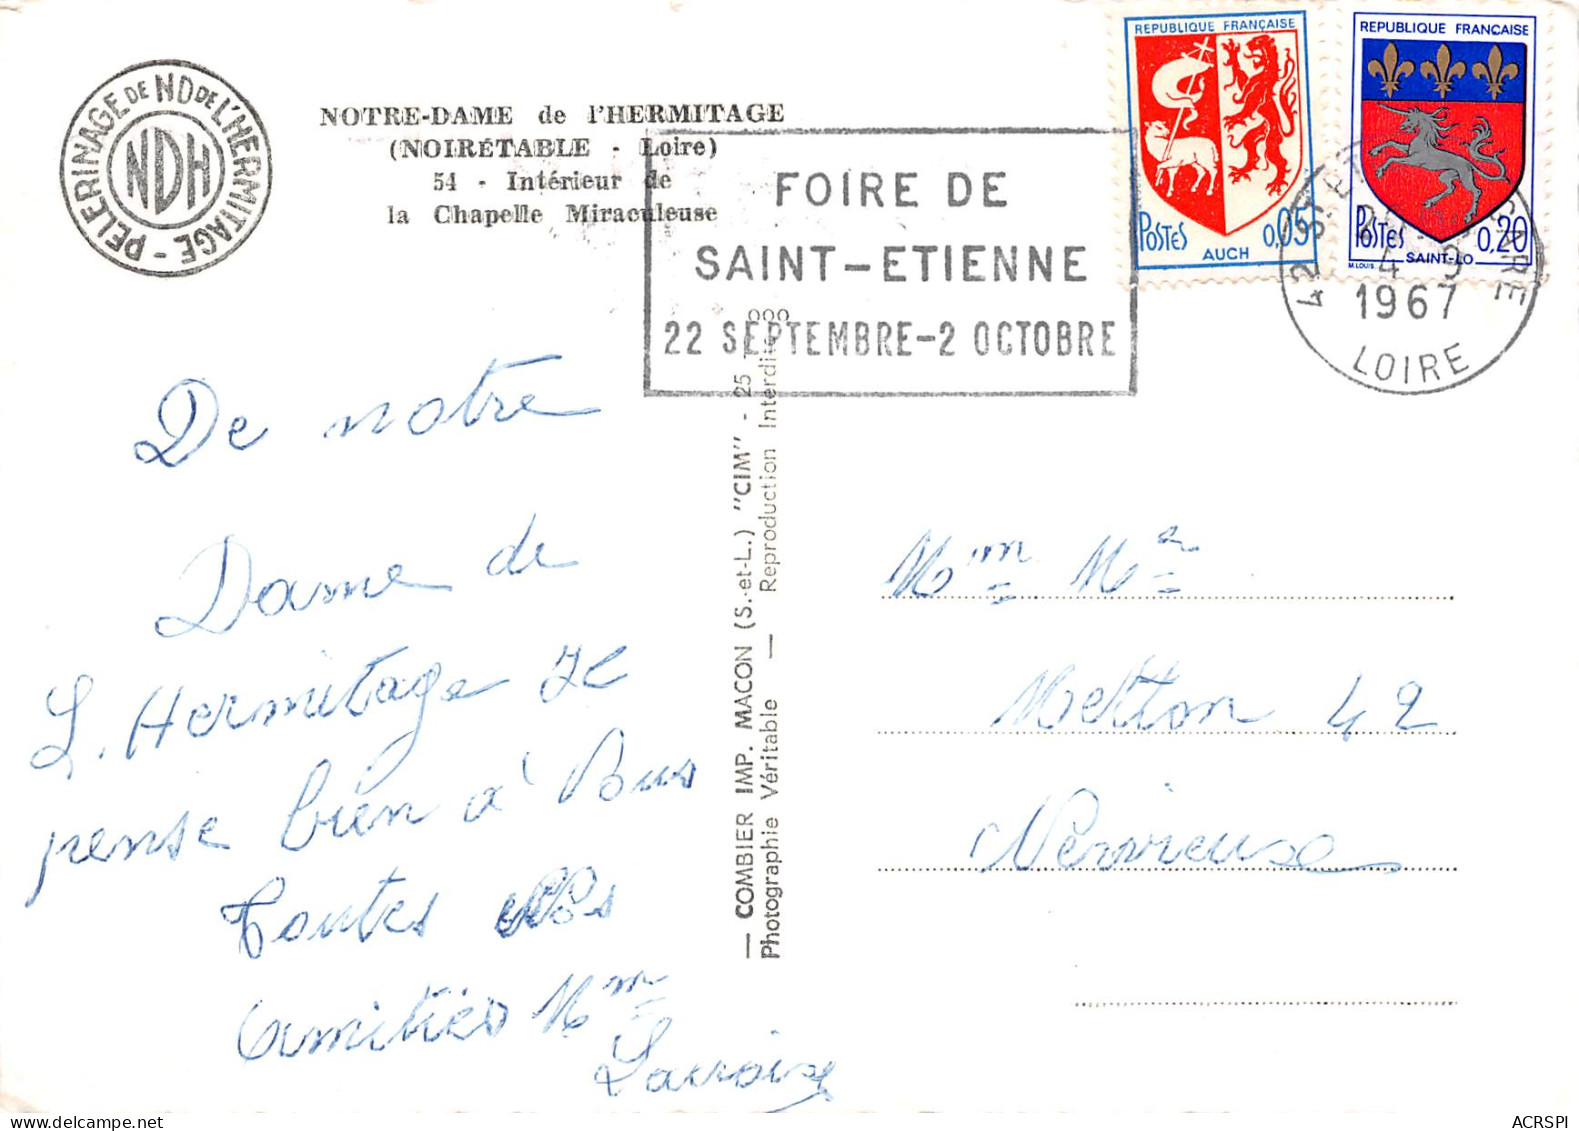 PELERINAGE DE ND DE L'HERMITAGE -
NDH
NOTRE-DAME de l'HERMITAGE
(NOIRÉTABLE - Loire)
54 - Intérieur de
la Chapelle Miraculeuse
FOIRE DE
SAINT-ETIENNE
22 SEPTEMBRE-2 OCTOBRE
REPUBLIQUE FRANÇAISE
POSTES 0,05
AUCH
REPUBLIQUE FRANÇAISE
POSTES 0,20
M. LOUIS SAINT-LO
42 ST-ETIENNE GARE
1967
LOIRE
De notre
Dame de
L. Hermitage Je
pense bien à Vous
toutes
amitiés Mm
— COMBIER IMP. MACON (S.-et-L.) "CIM" - 25
Photographie Véritable — Reproduction Interdite
Mm Mr
42
ACRSPI